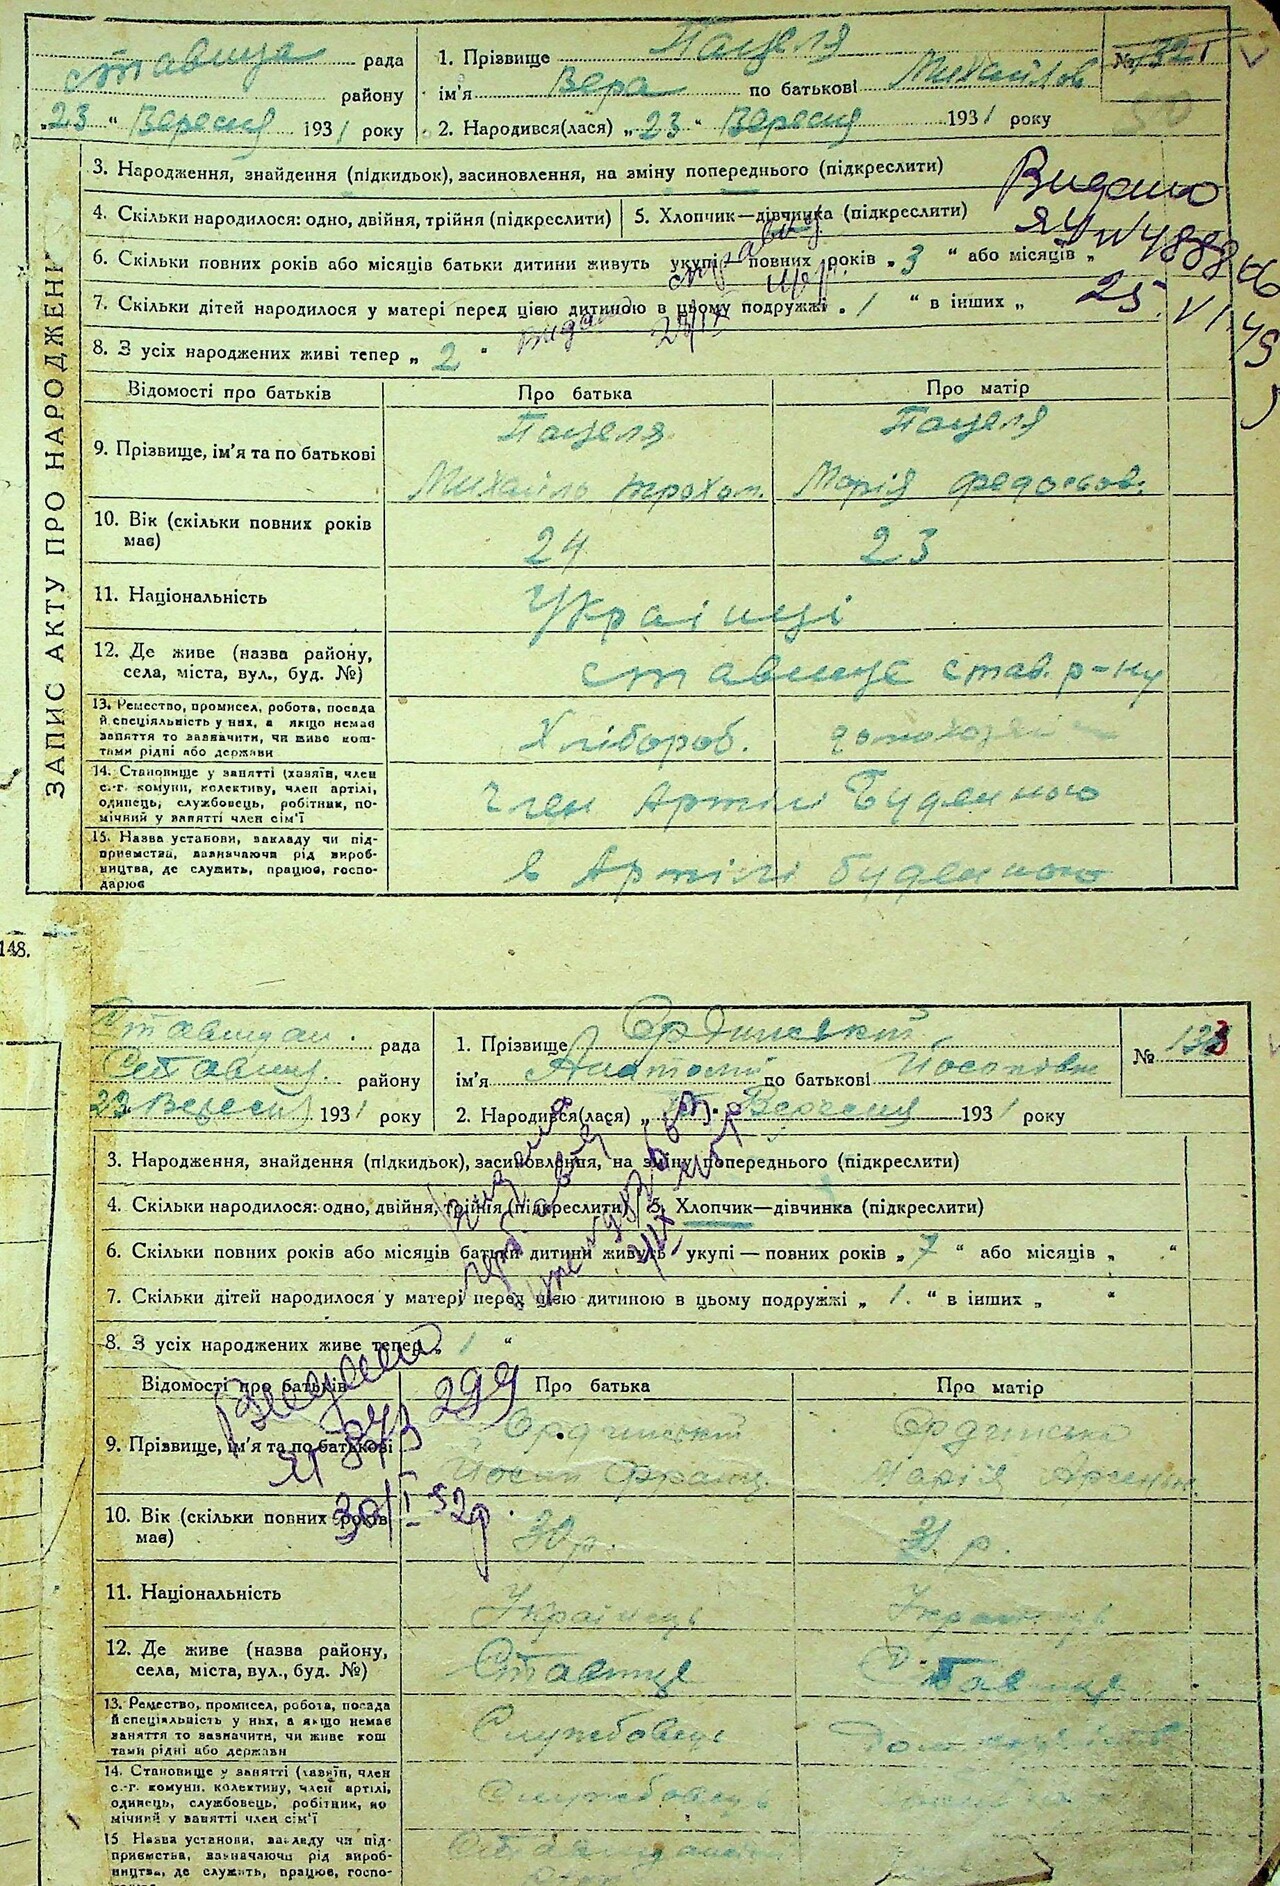 ЗАПИС АКТУ ПРО НАРОДЖЕН
ставища рада
району
"23" Вересня 1931 року
1. Прізвище Пацеля
ім'я Вера по батькові Михайлов
2. Народився(лася) "23" Вересня 1931 року
№ 132
50
3. Народження, знайдення (підкидьок), засиновлення, на зміну попереднього (підкреслити)
4. Скільки народилося: одно, двійня, трійня (підкреслити)
5. Хлопчик—дівчинка (підкреслити)
6. Скільки повних років або місяців батьки дитини живуть укупі повних років „3“ або місяців „
7. Скільки дітей народилося у матері перед цією дитиною в цьому подружжі „1“ в інших „
8. З усіх народжених живі тепер „2“
Видано
25. VI 45
Відомості про батьків
Про батька
Про матір
9. Прізвище, ім'я та по батькові
Пацеля
Михайло трохим.
Пацеля
Марія федосьов.
10. Вік (скільки повних років має)
24
23
11. Національність
Українці
12. Де живе (назва району, села, міста, вул., буд. №)
ставище став. р-ну
13. Ремество, промисел, робота, посада й спеціяльність у них, а якщо немає заняття то зазначити, чи живе коштами рідні або держави
Хлібороб.
14. Становище у занятті (хазяїн, член с.-г. комуни, колективу, член артілі, одинець, службовець, робітник, помічний у занятті член сім'ї
Член Артілі Буденного
15. Назва установи, закладу чи підприємства, зазначаючи рід виробництва, де служить, працює, господарює
в Артілі буденного
148.
рада
Ставищ. району
23 Вересня 1931 року
1. Прізвище Ординський
ім'я Анатолій по батькові Йосипович
2. Народився(лася) „ Вересня 1931 року
№ 133
3. Народження, знайдення (підкидьок), засиновлення, на зміну попереднього (підкреслити)
4. Скільки народилося: одно, двійня, трійня (підкреслити)
5. Хлопчик—дівчинка (підкреслити)
6. Скільки повних років або місяців батьки дитини живуть укупі — повних років „7“ або місяців „ “
7. Скільки дітей народилося у матері перед цією дитиною в цьому подружжі „1.“ в інших „ “
8. З усіх народжених живе тепер „1“
299
30/I 52р.
Відомості про батьків
Про батька
Про матір
9. Прізвище, ім'я та по батькові
Ординський
Йосип Франц.
Ординська
Марія
10. Вік (скільки повних років має)
30 р.
31. р.
11. Національність
Українець
12. Де живе (назва району, села, міста, вул., буд. №)
Ставище
Ставище
13. Ремество, промисел, робота, посада й спеціяльність у них, а якщо немає заняття то зазначити, чи живе кош тами рідні або держави
Службовець
14. Становище у занятті (хазяїн, член с.-г. комуни, колективу, член артілі, одинець, службовець, робітник, по мічний у занятті член сім'ї
Службовець
15. Назва установи, закладу чи підприємства, зазначаючи рід виробництва, де служить, працює, госпо-